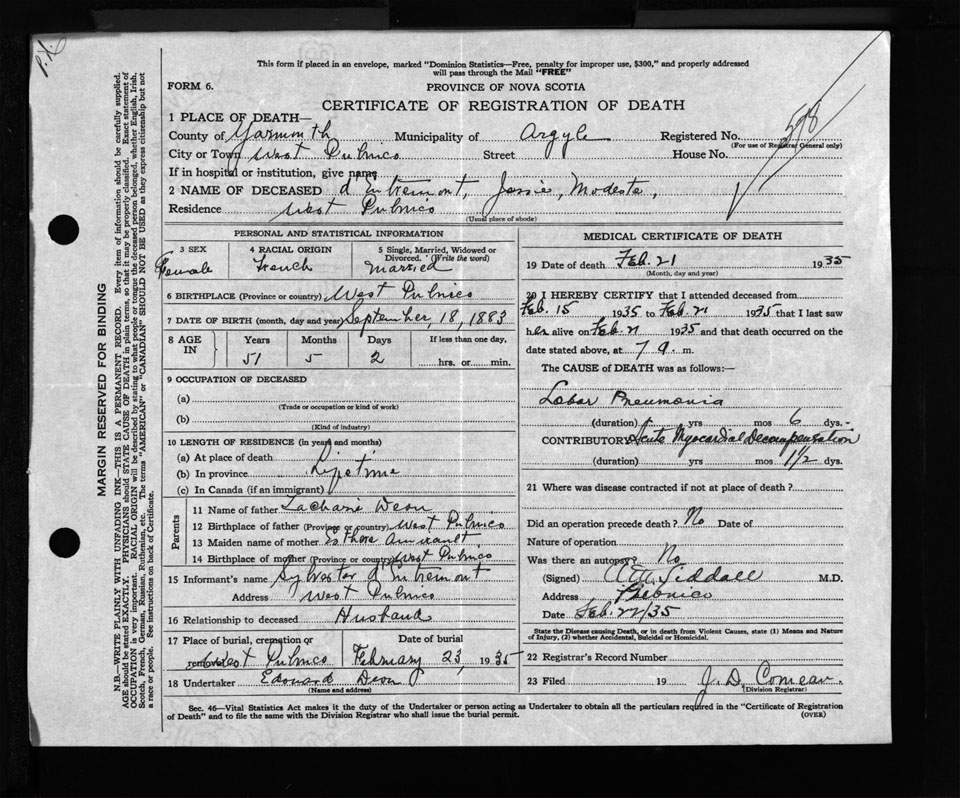 P.X.
This form if placed in an envelope, marked "Dominion Statistics—Free, penalty for improper use, $300," and properly addressed
will pass through the Mail "FREE"
FORM 6.
PROVINCE OF NOVA SCOTIA
CERTIFICATE OF REGISTRATION OF DEATH
1 PLACE OF DEATH—
County of Yarmouth Municipality of Argyle Registered No. 508
(For use of Registrar General only)
City or Town West Pubnico Street House No.
If in hospital or institution, give name
2 NAME OF DECEASED d'Entremont, Jessie, Modeste,
Residence West Pubnico
(Usual place of abode)
PERSONAL AND STATISTICAL INFORMATION
3 SEX 4 RACIAL ORIGIN 5 Single, Married, Widowed or
Divorced. (Write the word)
Female French Married
6 BIRTHPLACE (Province or country) West Pubnico
7 DATE OF BIRTH (month, day and year) September, 18, 1883
8 AGE IN Years Months Days If less than one day,
51 5 2 hrs. or min.
9 OCCUPATION OF DECEASED
(a)
(Trade or occupation or kind of work)
(b)
(Kind of industry)
10 LENGTH OF RESIDENCE (in years and months)
(a) At place of death
(b) In province Lifetime
(c) In Canada (if an immigrant)
Parents
11 Name of father Zacharie Deon
12 Birthplace of father (Province or country) West Pubnico
13 Maiden name of mother Esthere Amirault
14 Birthplace of mother (Province or country) West Pubnico
15 Informant's name Sylvester d'Entremont
Address West Pubnico
16 Relationship to deceased Husband
17 Place of burial, cremation or Date of burial
removal West Pubnico February 23, 1935
18 Undertaker Edouard Deon
(Name and address)
MEDICAL CERTIFICATE OF DEATH
19 Date of death Feb. 21 1935
(Month, day and year)
20 I HEREBY CERTIFY that I attended deceased from
Feb. 15 1935 to Feb. 21 1935 that I last saw
her alive on Feb 21 1935 and that death occurred on
date stated above, at 7 a. m.
The CAUSE of DEATH was as follows:—
Lobar Pneumonia
(duration) yrs mos 6 dys.-
CONTRIBUTORY Acute Myocardial Decompensation
(duration) yrs mos 1½ dys.
21 Where was disease contracted if not at place of death?
Did an operation precede death? No Date of
Nature of operation
Was there an autopsy? No
(Signed) Siddall M.D.
Address Pubnico
Date Feb. 22/35
State the Disease causing Death, or in death from Violent Causes, state (1) Means and Nature
of Injury, (2) whether Accidental, Suicidal or Homicidal.
22 Registrar's Record Number
23 Filed 19 J. D. Comeau.
(Division Registrar)
Sec. 46—Vital Statistics Act makes it the duty of the Undertaker or person acting as Undertaker to obtain all the particulars required in the "Certificate of Registration
of Death" and to file the same with the Division Registrar who shall issue the burial permit.
(OVER)
MARGIN RESERVED FOR BINDING
N.B.—WRITE PLAINLY WITH UNFADING INK—THIS IS A PERMANENT RECORD. Every item of information should be carefully supplied.
AGE should be stated EXACTLY. PHYSICIANS should STATE CAUSE OF DEATH in plain terms, so that it may be properly classified. Exact statement of
OCCUPATION is very important. RACIAL ORIGIN will be described by stating to what people or tongue the deceased person belonged, whether English, Irish,
Scotch, French, German, Russian, Ruthenian, etc. The terms "AMERICAN" or "CANADIAN" SHOULD NOT BE USED as they express citizenship but not
a race or people. See instructions on back of Certificate.